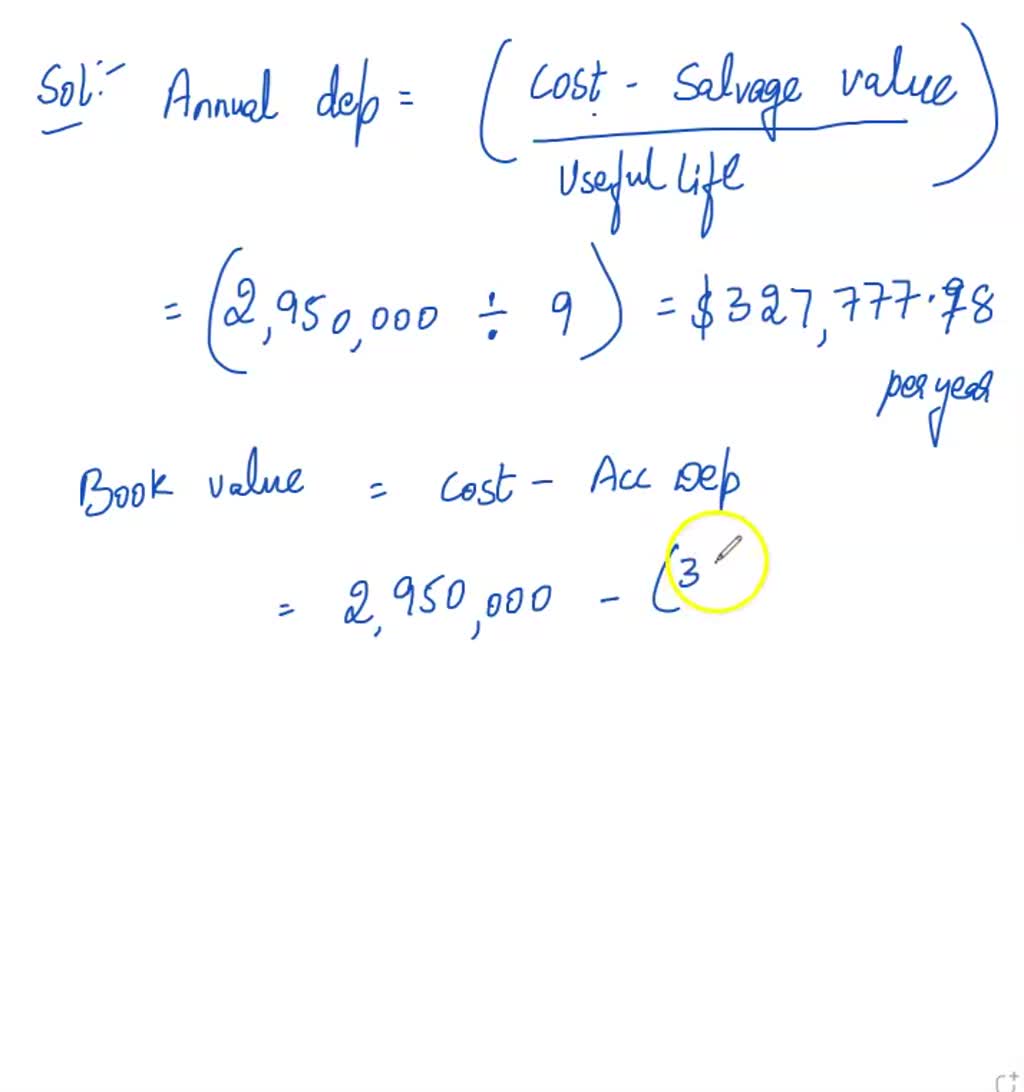 Sol:- Annual dep = (Cost - Salvage value / Useful life)
= (2,950,000 ÷ 9) = $327,777.78
per year
Book value = Cost - Acc Dep
= 2,950,000 - (3